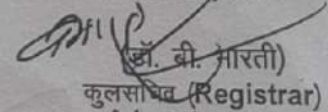 (डॉ. बी. भारती)
कुलसचिव (Registrar)